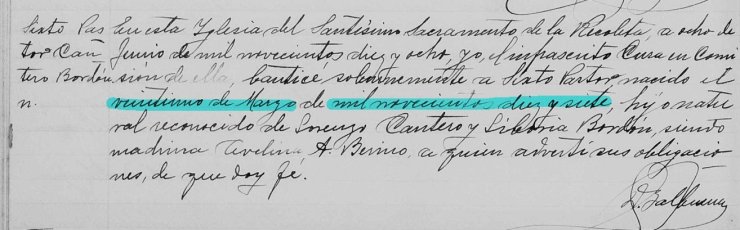 Sixto Pas En esta Iglesia del Santísimo Sacramento de la Recoleta, a ocho de
tor Can Junio de mil novecientos diez y ocho, yo, el infrascrito Cura en Comi
tero Bordón sión de ella, bauticé solemnemente a Sixto Pastor nacido el
n. veintiuno de Marzo de mil novecientos diez y siete, hijo natu
ral reconocido de Lorenzo Cantero y Liboria Bordón, siendo
madrina Avelina A. Benno, a quien advertí sus obligacio
nes, de que doy fe.